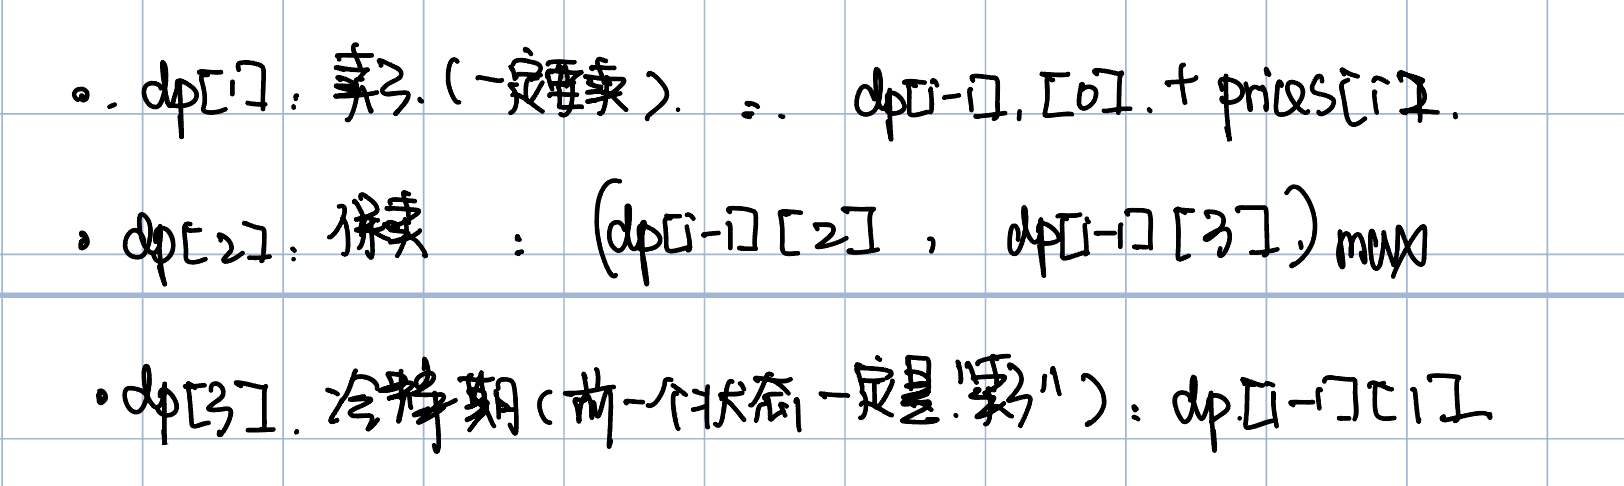 dp[1]: 卖了.(一定要卖). = dp[i-1].[0].+prices[i].
dp[2]: 保卖 : (dp[i-1][2], dp[i-1][3])max
dp[3]. 冷静期(前一个状态一定是"卖了"): dp[i-1][1]